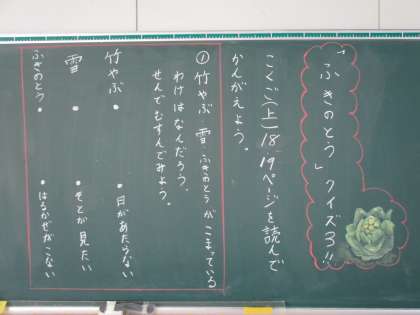 「ふきのとう」クイズ3!!
こくご(上)18、19ページを読んで
かんがえよう。
① 竹やぶ 雪 ふきのとうが こまっている
わけはなんだろう。
せんで むすんでみよう。
竹やぶ • • 日があたらない
雪 • • そとが見たい
ふきのとう • • はるかぜがこない